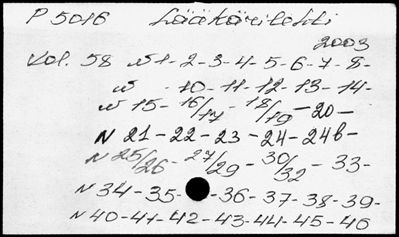 P 5016 Lääkärilehti
2003
Vol. 58 N 1-2-3-4-5-6-7-8-
N -10-11-12-13-14-
N 15-16/17-18/19-20-
N 21-22-23-24-24b-
N 25/26-27/29-30/32-33-
N 34-35-36-37-38-39-
N 40-41-42-43-44-45-46